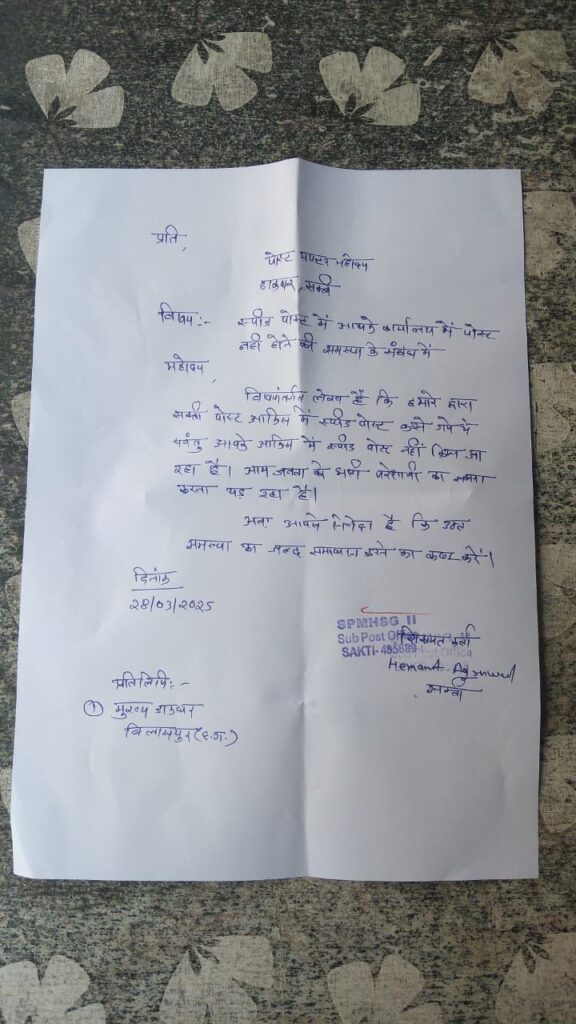 प्रति,
पोस्ट मास्टर महोदय
डाकघर, सक्ती
विषय:- स्पीड पोस्ट में आपके कार्यालय में पोस्ट
नहीं होने की समस्या के संबंध में
महोदय,
विषयांतर्गत लेख है कि हमारे द्वारा
सक्ती पोस्ट आफिस में स्पीड पोस्ट करने गये थे
परंतु आपके आफिस में स्पीड पोस्ट नहीं किया जा
रहा है। आम जनता को भारी परेशानी का सामना
करना पड़ रहा है।
अतः आपसे निवेदन है कि उक्त
समस्या का जल्द समाधान करने का कष्ट करें।
दिनांक
28/03/2025
SPMHSG II
Sub Post Office
SAKTI-495689
शिकायत कर्ता
Hemant Agrawal
सक्ती
प्रतिलिपि:-
① मुख्य डाकघर
बिलासपुर (छ.ग.)